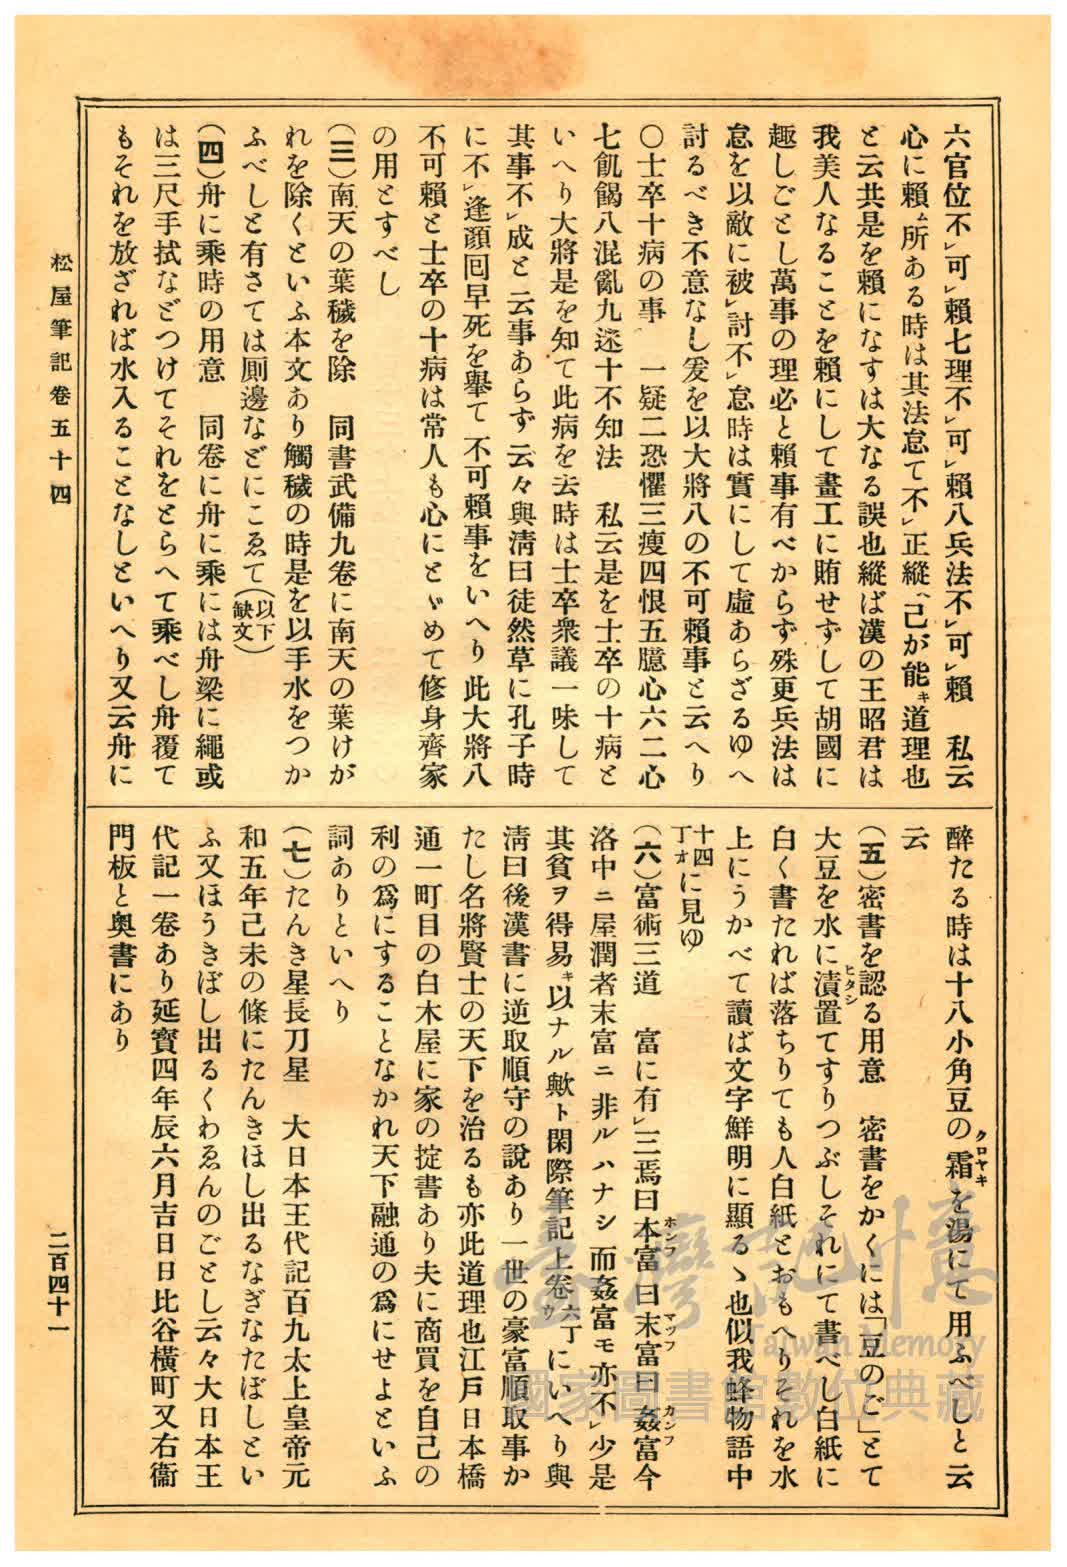 六官位不㆑可㆑賴七理不㆑可㆑賴八兵法不㆑可㆑賴　私云
心に賴ム所ある時は其法怠て不㆑正縱ハ己が能キ道理也
と云共是を賴になすは大なる誤也縱ば漢の王昭君は
我美人なることを賴にして畫工に賄せずして胡國に
趣しごとし萬事の理必と賴事有べからず殊更兵法は
怠を以敵に被㆑討不㆑怠時は實にして虛あらざるゆへ
討るべき不意なし爰を以大將八の不可賴事と云へり
〇士卒十病の事　一疑二恐懼三瘦四恨五臆心六二心
七飢餲八混亂九迷十不知法　私云是を士卒の十病と
いへり大將是を知て此病を去時は士卒衆議一味して
其事不㆑成と云事あらず云々與淸曰徒然草に孔子時
に不㆑逢顏回早死を擧て不可賴事をいへり此大將八
不可賴と士卒の十病は常人も心にとゞめて修身齊家
の用とすべし
（三）南天の葉穢を除　同書武備九卷に南天の葉けが
れを除くといふ本文あり觸穢の時是を以手水をつか
ふべしと有さては厠邊などにこゑて（以下缺文）
（四）舟に乘時の用意　同卷に舟に乘には舟梁に繩或
は三尺手拭などつけてそれをとらへて乘べし舟覆て
もそれを放ざれば水入ることなしといへり又云舟に
醉たる時は十八小角豆の霜クロヤキを湯にて用ふべしと云
云
（五）密書を認る用意　密書をかくには「豆のご」とて
大豆を水に漬ヒタシ置てすりつぶしそれにて書べし白紙に
白く書たれば落ちりても人白紙とおもへりそれを水
上にうかべて讀ば文字鮮明に顯るゝ也似我蜂物語中
十四丁オに見ゆ
（六）富術三道　富に有㆑三焉曰本富ホンフ曰末富マツフ曰姦富カンフ今
洛中ニ屋潤者末富ニ非ルハナシ而姦富モ亦不㆑少是
其貧ヲ得易キ以ナル歟ト閑際筆記上卷六丁ウにいへり與
淸曰後漢書に逆取順守の說あり一世の豪富順取事か
たし名將賢士の天下を治るも亦此道理也江戶日本橋
通一町目の白木屋に家の掟書あり夫に商買を自己の
利の爲にすることなかれ天下融通の爲にせよといふ
詞ありといへり
（七）たんき星長刀星　大日本王代記百九太上皇帝元
和五年己未の條にたんきほし出るなぎなたぼしとい
ふ又ほうきぼし出るくわゑんのごとし云々大日本王
代記一卷あり延寶四年辰六月吉日日比谷橫町又右衞
門板と奧書にあり
松屋筆記卷五十四
二百四十一
臺灣記憶
Taiwan Memory
國家圖書館數位典藏